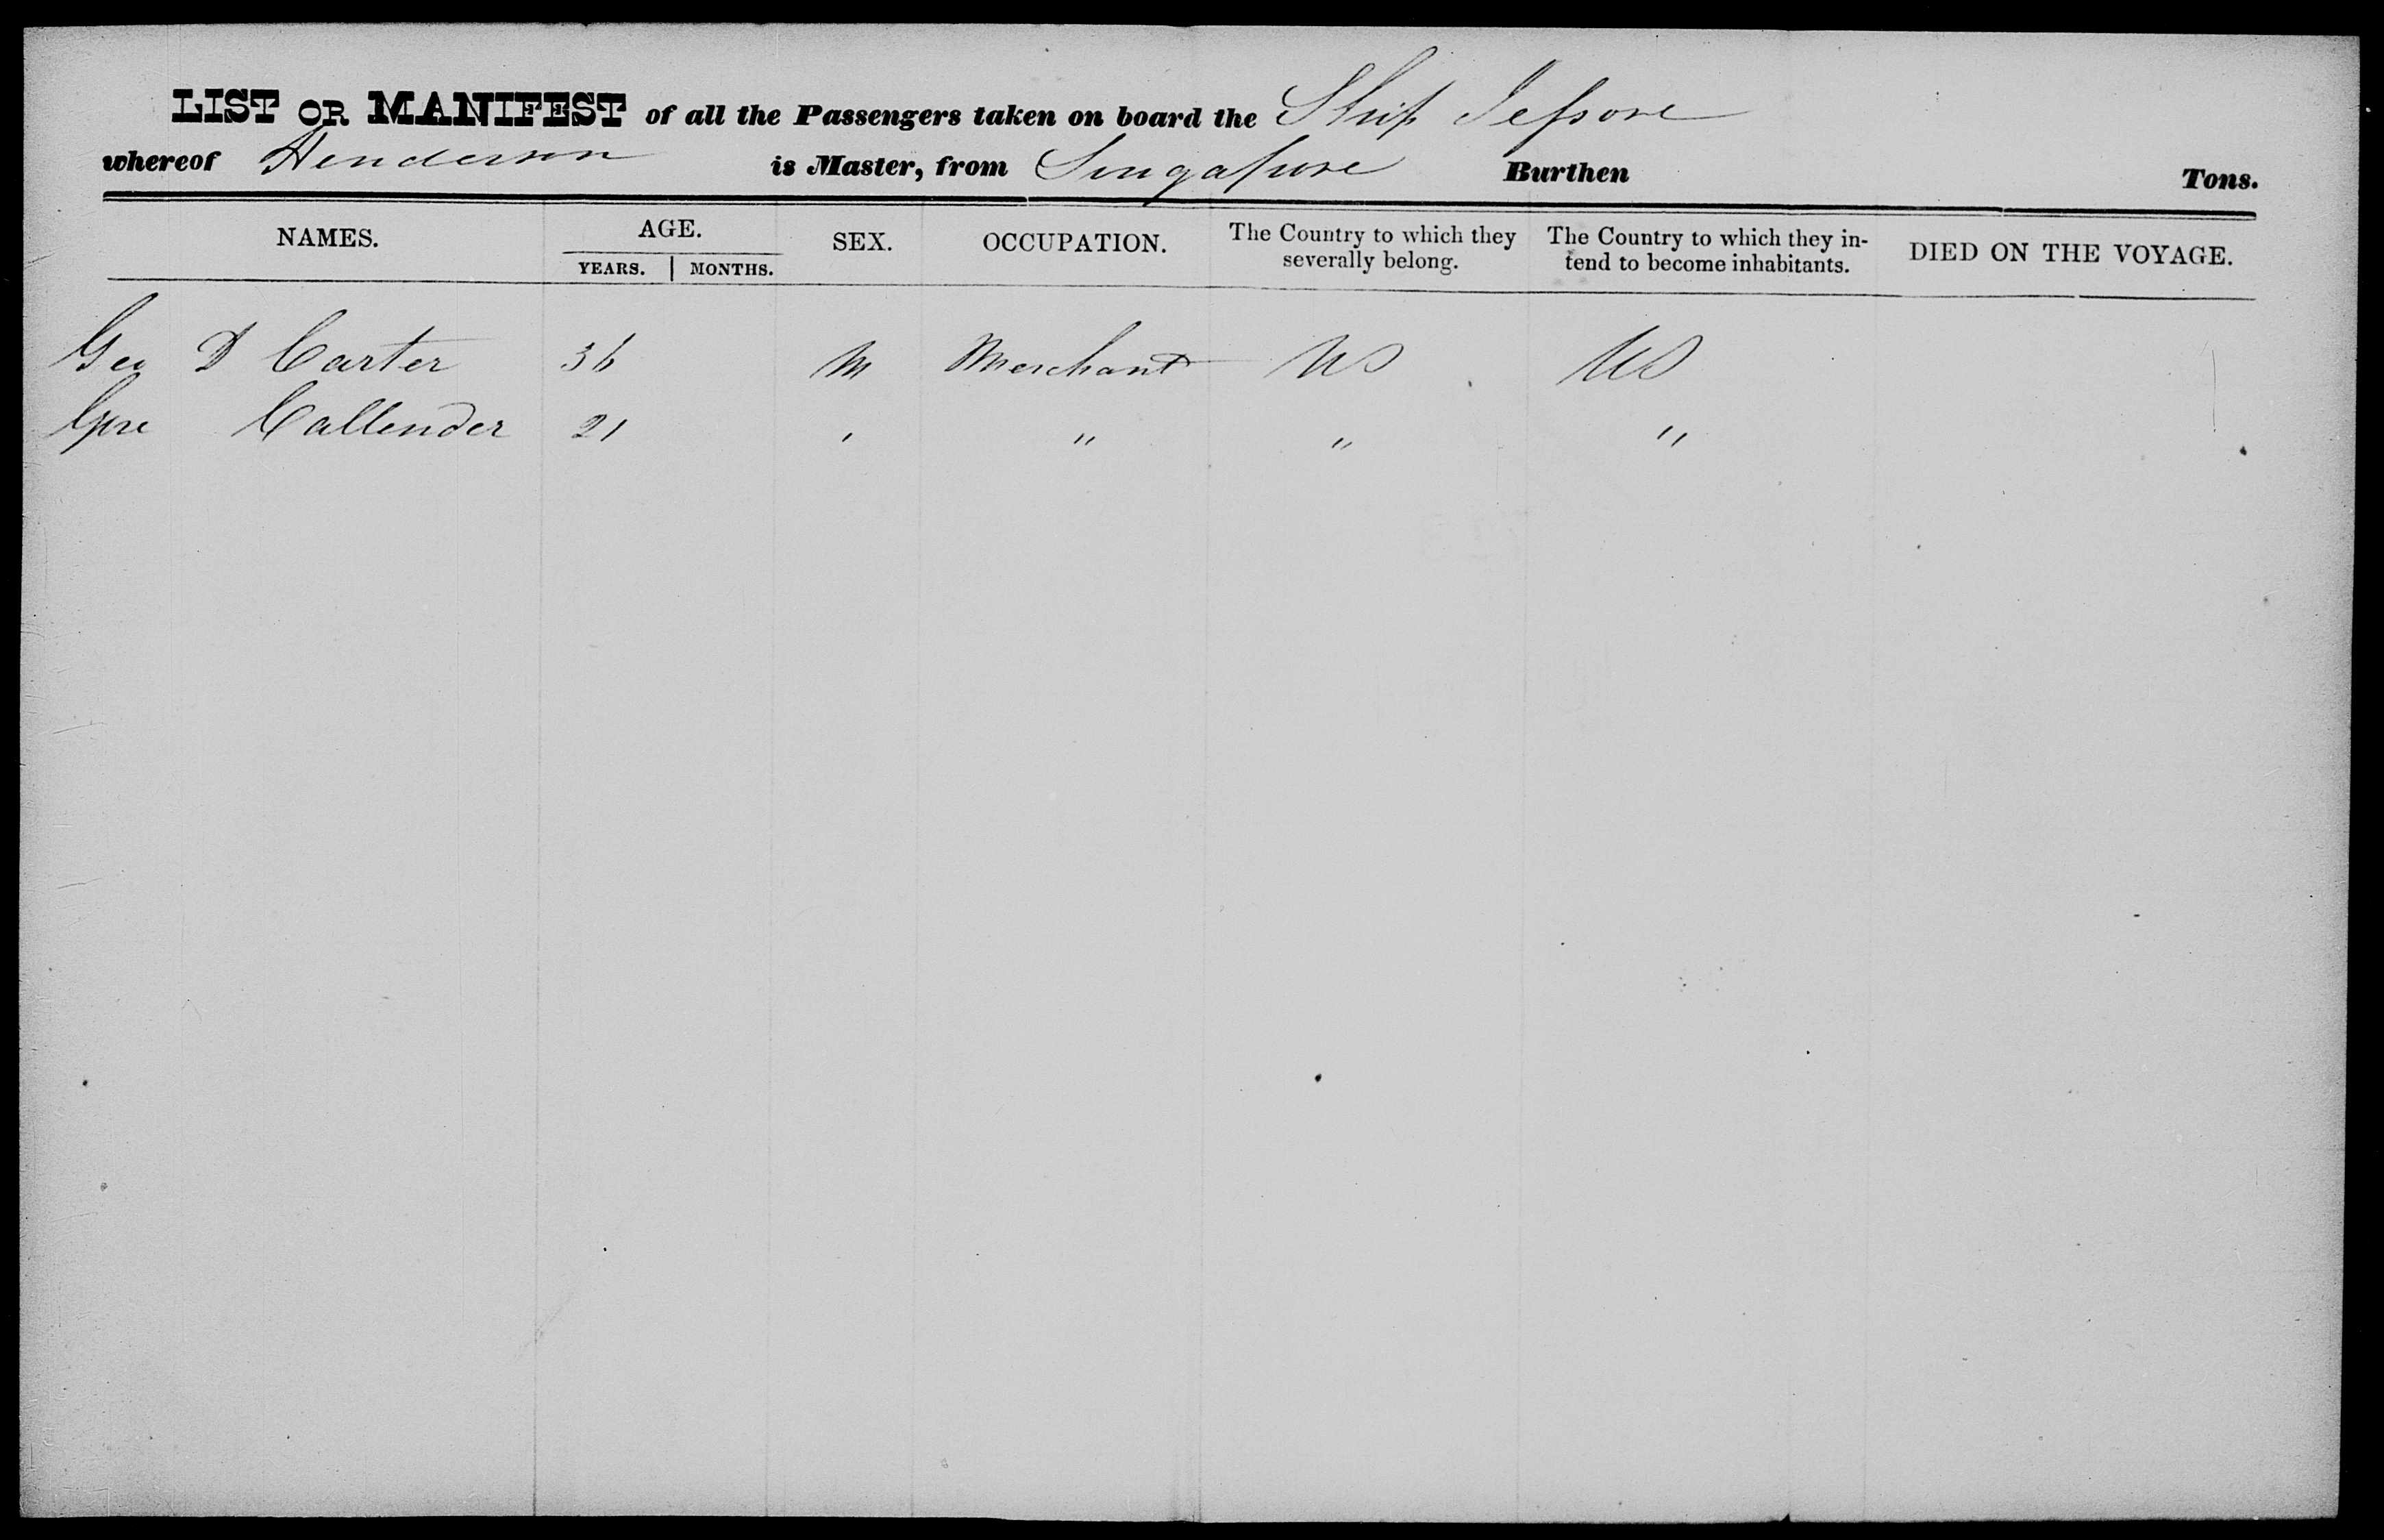 LIST OR MANIFEST of all the Passengers taken on board the Ship Jessore
whereof Henderson is Master, from Singapore Burthen Tons.
NAMES. AGE. SEX. OCCUPATION. The Country to which they severally belong. The Country to which they in-tend to become inhabitants. DIED ON THE VOYAGE.
YEARS. MONTHS.
Geo D Carter 36 M Merchant US US
Callender 21 " " " "